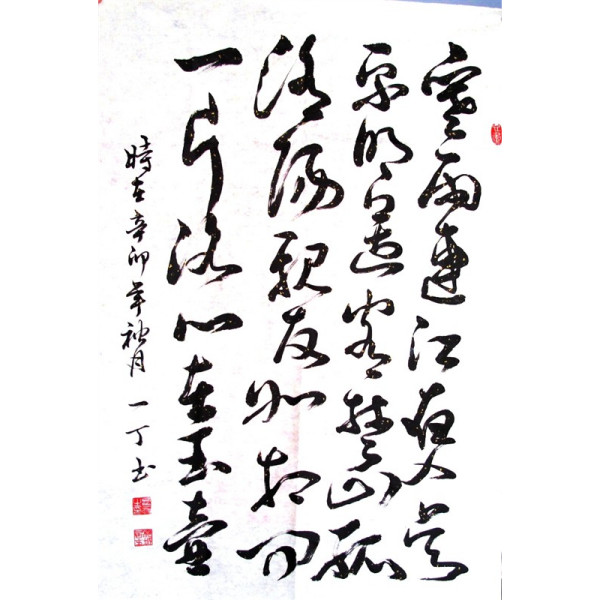 寒雨連江夜入吴
平明送客楚山孤
洛陽親友如相問
一片冰心在玉壺
時在辛卯年秋月一丁书